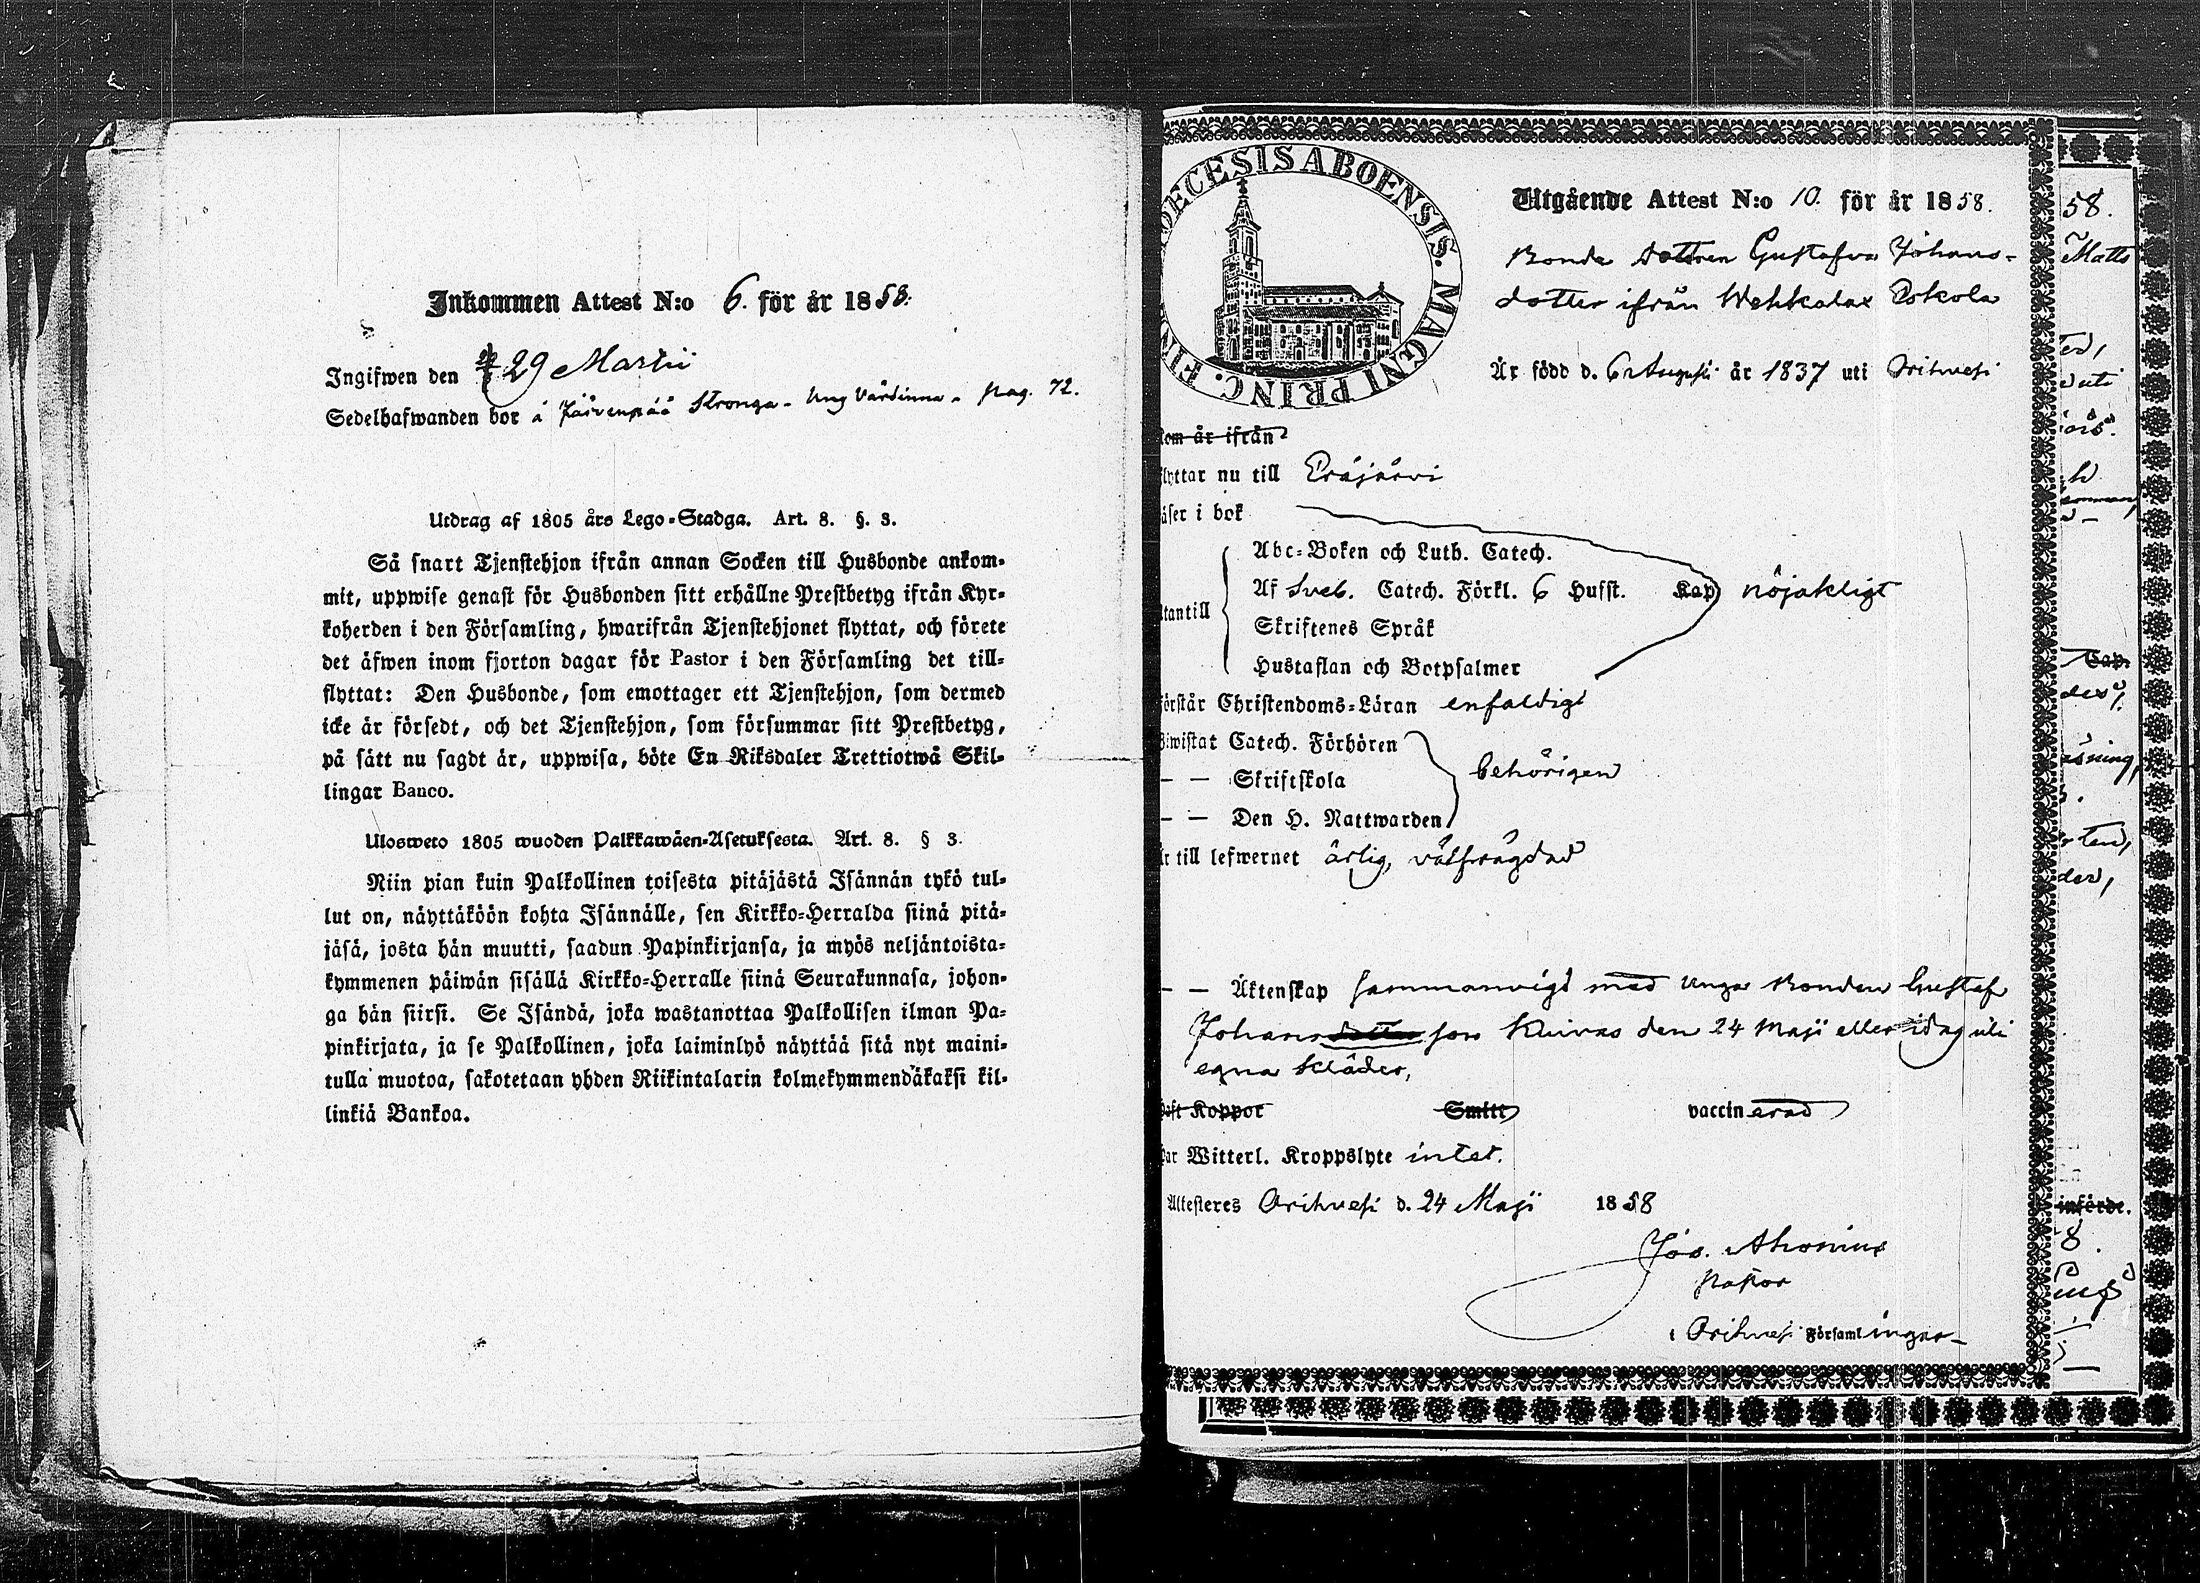 Inkommen Attest N:o 6. för år 1858.
Ingifwen den 29 Martii
Sedelhafwanden bor å Järvenpää Stronga - Ung Värdinna - pag. 72.
Utdrag af 1805 års Lego-Stadga. Art. 8. §. 3.
Så snart Tjenstehjon ifrån annan Socken till Husbonde ankom-
mit, uppwise genast för Husbonden sitt erhållne Prestbetyg ifrån Kyr-
koherden i den Församling, hwarifrån Tjenstehjonet flyttat, och förete
det äfwen inom fjorton dagar för Pastor i den Församling det till-
flyttat: Den Husbonde, som emottager ett Tjenstehjon, som dermed
icke är försedt, och det Tjenstehjon, som försummar sitt Prestbetyg,
på sätt nu sagdt är, uppwisa, böte En Riksdaler Trettiotwå Skil-
lingar Banco.
Ulosweto 1805 wuoden Palkkawäen-Asetuksesta. Art. 8. § 3.
Niin pian kuin Palkollinen toisesta pitäjästä Isännän tykö tul-
lut on, näyttäköön kohta Isännälle, sen Kirkko-Herralda siinä pitä-
jäsä, josta hän muutti, saadun Papinkirjansa, ja myös neljäntoista-
kymmenen päiwän sisällä Kirkko-Herralle siinä Seurakunnasa, johon-
ga hän siirsi. Se Isändä, joka wastanottaa Palkollisen ilman Pa-
pinkirjata, ja se Palkollinen, joka laiminlyö näyttää sitä nyt maini-
tulla muotoa, sakotetaan yhden Riikintalarin kolmekymmendäkaksi kil-
linkiä Bankoa.
DECESIS ABOENSIS. MAGNI PRINC. FIN
Utgående Attest N:o 10. för år 1858.
Bonde dottren Gustafva Johans-
dotter ifrån Wehkalax Eskola
Är född d. 6 Augusti år 1837 uti Orihvesi
kom är ifrån
flyttar nu till Eräjärvi
läser i bok
Abc-Boken och Luth. Catech.
utantill Af Sveb. Catech. Förkl. 6 Husst. Kap nöjaktligt
Skriftenes Språk
Hustaflan och Botpsalmer
förstår Christendoms-Läran enfaldigt
Biwistat Catech. Förhören
— — Skriftskola behörigen
— — Den H. Nattwarden
är till lefwernet ärlig, välfrägdad
— — Äktenskap sammanvigd med Unga Bonden Gustaf
Johans son Kuivas den 24 Maji eller idag uti
egna kläder,
haft Koppor Smitt vaccinerad
har Witterl. Kroppslyte intet.
Attesteres Orihvesi d. 24 Maji 1858
Jos. Ahonius
Pastor
i Orihvesi Församlingar
58.
Matts